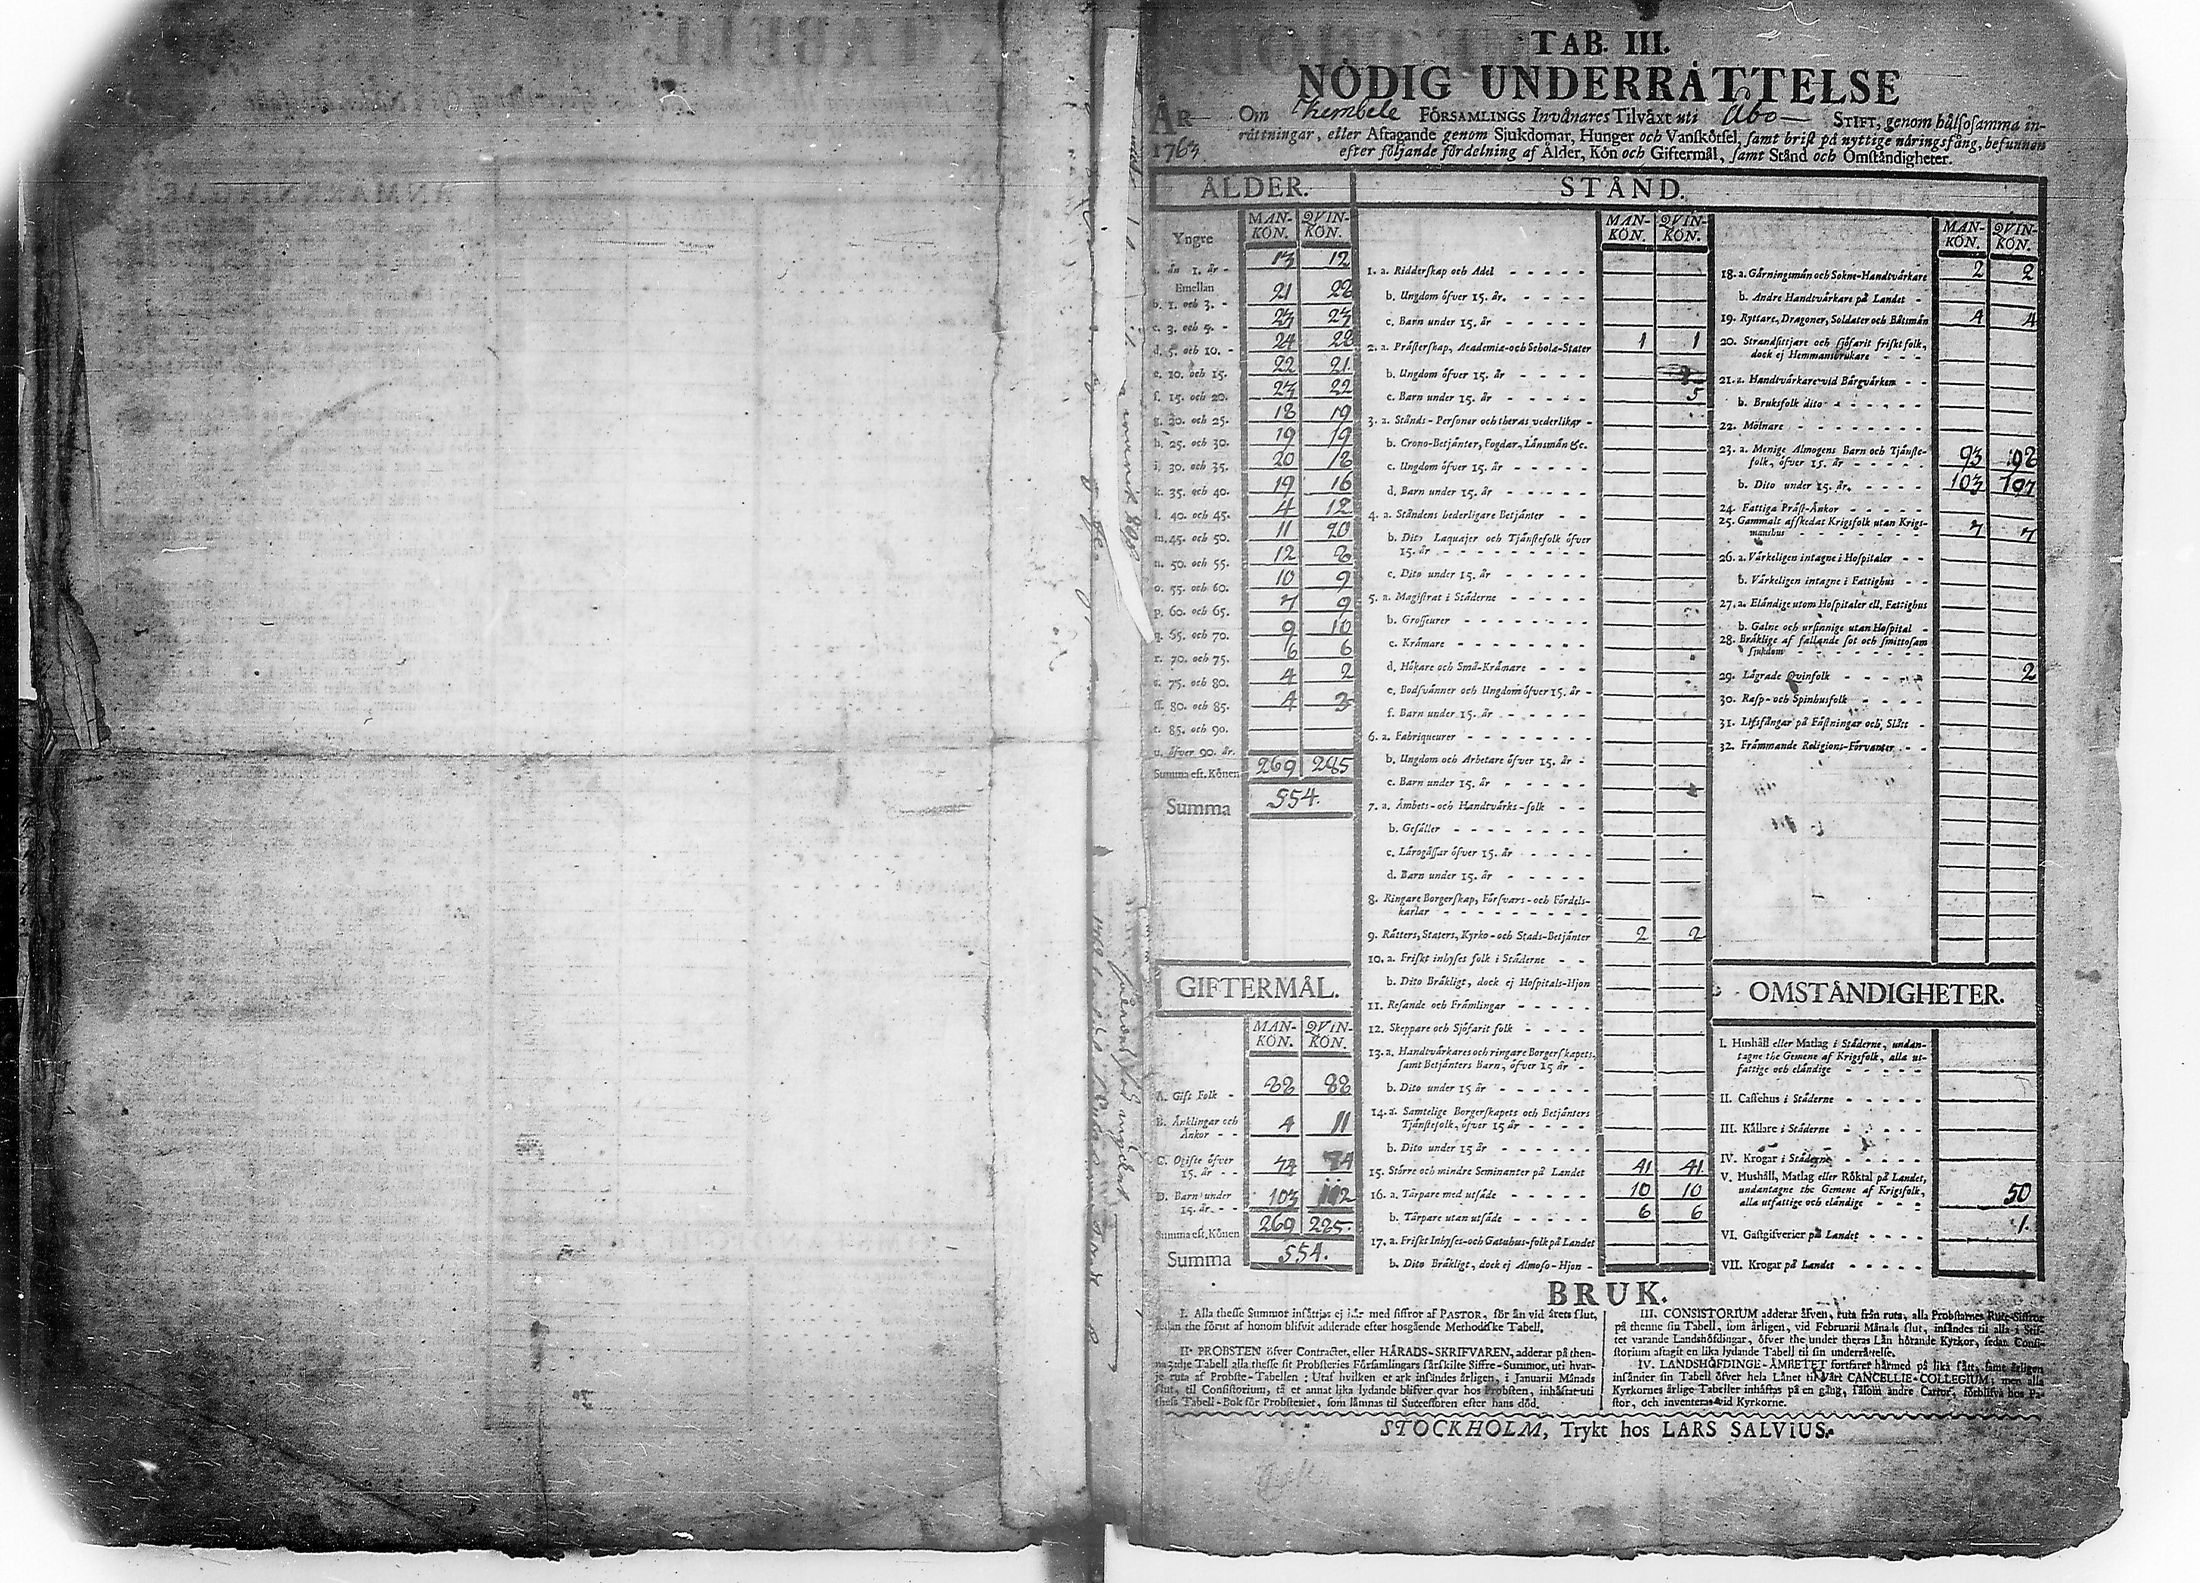 TAB. III.
NÖDIG UNDERRÄTTELSE
ÅR 1763
Om Kembele FÖRSAMLINGS Invånares Tilväxt uti Åbo STIFT, genom hälsosamma in-
rättningar, eller Aftagande genom Sjukdomar, Hunger och Vanskötsel, samt brist på nyttige näringsfång, befunnen
efter följande fördelning af Ålder, Kön och Giftermål, samt Stånd och Omståndigheter.
ÅLDER.
MAN-KÖN. QVIN-KÖN.
Yngre
a. än 1. år - 13 12
Emellan
b. 1. och 3. - 21 22
c. 3. och 5. - 23 23
d. 5. och 10. - 24 22
e. 10. och 15. 22 21
f. 15. och 20. 23 22
g. 20. och 25. 18 19
h. 25. och 30. 19 19
i. 30. och 35. 20 18
k. 35. och 40. 19 16
l. 40. och 45. 4 12
m. 45. och 50. 11 20
n. 50. och 55. 12 8
o. 55. och 60. 10 9
p. 60. och 65. 7 9
q. 65. och 70. 9 10
r. 70. och 75. 6 6
s. 75. och 80. 4 2
ss. 80. och 85. 4 3
t. 85. och 90.
u. öfver 90. år.
Summa eft. Könen 269 285
Summa 554.
GIFTERMÅL.
MAN-KÖN. QVIN-KÖN.
A. Gift Folk - 88 88
B. Änklingar och
Änkor - - 4 11
C. Ogifte öfver
15. år - - 74 74
D. Barn under
15. år - - 103 112
Summa eft. Könen 269 285.
Summa 554.
STÅND.
MAN-KÖN. QVIN-KÖN.
1. a. Ridderskap och Adel - - - - -
b. Ungdom öfver 15. år. - - - -
c. Barn under 15. år - - - - -
2. a. Prästerskap, Academiæ-och Scholæ-Stater 1 1
b. Ungdom öfver 15. år - - - - -
c. Barn under 15. år - - - - - 5
3. a. Stånds-Personer och theras vederlikar -
b. Crono-Betjänter, Fogdar, Länsmän &c.
c. Ungdom öfver 15. år - - - - -
d. Barn under 15. år - - - - -
4. a. Ståndens hederligare Betjänter - -
b. Dito Laquajer och Tjänstefolk öfver
15. år - - - - - - - -
c. Dito under 15. år - - - - -
5. a. Magistrat i Städerne - - - - -
b. Grosseurer - - - - - - -
c. Krämare - - - - - - -
d. Hökare och Små-Krämare - - -
e. Bodsvänner och Ungdom öfver 15. år -
f. Barn under 15. år - - - - -
6. a. Fabriqueurer - - - - - - -
b. Ungdom och Arbetare öfver 15. år -
c. Barn under 15. år - - - - -
7. a. Ämbets-och Handtvärks-folk - -
b. Gesäller - - - - - - -
c. Lärogåssar öfver 15. år - - - -
d. Barn under 15. år - - - - -
8. Ringare Borgerskap, Försvars-och Fördels-
karlar - - - - - - - -
9. Rätters, Staters, Kyrko-och Stads-Betjänter 2 2
10. a. Friskt inhyses folk i Städerne - -
b. Dito Bräkligt, dock ej Hospitals-Hjon
11. Resande och Främlingar - - - -
12. Skeppare och Sjöfarit folk - - - -
13. a. Handtvärkares och ringare Borgerskapets,
samt Betjänters Barn, öfver 15 år -
b. Dito under 15 år - - - - -
14. a. Samtelige Borgerskapets och Betjänters
Tjänstefolk, öfver 15 år - - - -
b. Dito under 15 år - - - - -
15. Större och mindre Seminanter på Landet 41 41
16. a. Tärpare med utsäde - - - - - 10 10
b. Tärpare utan utsäde - - - - - 6 6
17. a. Friskt Inhyses-och Gatuhus-folk på Landet
b. Dito Bräkligt, dock ej Almoso-Hjon -
MAN-KÖN. QVIN-KÖN.
18. a. Gärningsmän och Sokne-Handtvärkare 2 2
b. Andre Handtvärkare på Landet -
19. Ryttare, Dragoner, Soldater och Båtsmän 4 4
20. Strandsittjare och sjöfarit friskt folk,
dock ej Hemmansbrukare - - -
21. a. Handtvärkare vid Bärgvärken - -
b. Bruksfolk dito - - - - - -
22. Mölnare - - - - - - - -
23. a. Menige Almogens Barn och Tjänste-
folk, öfver 15. år - - - - - 93 98
b. Dito under 15. år. - - - - 103 107
24. Fattiga Präst-Änkor - - - - -
25. Gammalt affskedat Krigsfolk utan Krigs-
manshus - - - - - - - 7 7
26. a. Värkeligen intagne i Hospitaler - -
b. Värkeligen intagne i Fattighus - -
27. a. Eländige utom Hospitaler ell. Fattighus
b. Galne och ursinnige utan Hospital -
28. Bräklige af fallande sot och smittosam
sjukdom - - - - - - -
29. Lägrade Qvinfolk - - - - - 2
30. Rasp-och Spinhusfolk - - - -
31. Lifsfångar på Fästningar och Slått -
32. Främmande Religions-Förvanter - -
OMSTÅNDIGHETER.
I. Hushåll eller Matlag i Städerne, undan-
tagne the Gemene af Krigsfolk, alla ut-
fattige och eländige - - - - -
II. Caffehus i Städerne - - - - -
III. Källare i Städerne - - - - -
IV. Krogar i Städerne - - - - -
V. Hushåll, Matlag eller Röktal på Landet,
undantagne the Gemene af Krigsfolk,
alla utfattige och eländige - - - 50
VI. Gästgifverier på Landet - - - - 1.
VII. Krogar på Landet - - - - -
BRUK.
I. Alla thesse Summor insättjas ej här med siffror af PASTOR, för än vid årets slut,
sedan the förut af honom blifvit adderade efter hosgående Methodiske Tabell.
II. PROBSTEN öfver Contractet, eller HÄRADS-SKRIFVAREN, adderar på then-
na 3dje Tabell alla thesse sit Probsteries Församlingars särskilte Siffre-Summor, uti hvar-
je ruta af Probste-Tabellen: Utaf hvilken et ark insändes årligen, i Januarii Månads
slut, til Consistorium, tå et annat lika lydande blifver qvar hos Probsten, inhäftat uti
thess Tabell-Bok för Probsteriet, som lämnas til Successoren efter hans död.
III. CONSISTORIUM adderar äfven, ruta från ruta, alla Probstarnes Rute-Siffror
på thenne sin Tabell, som årligen, vid Februarii Månads slut, insändes til alla i Stif-
tet varande Landshöfdingar, öfver the under theras Län hörande Kyrkor, sedan Consi-
storium aftagit en lika lydande Tabell til sin underrättelse.
IV. LANDSHÖFDINGE-ÄMBETET fortfaret härmed på lika sätt, samt årligen
insänder sin Tabell öfver hela Länet til Vårt CANCELLIE-COLLEGIUM; men alla
Kyrkornes årlige Tabeller inhäftas på en gång, såsom andre Cartor, förblifva hos Pa-
stor, och inventeras vid Kyrkorne.
STOCKHOLM, Trykt hos LARS SALVIUS.